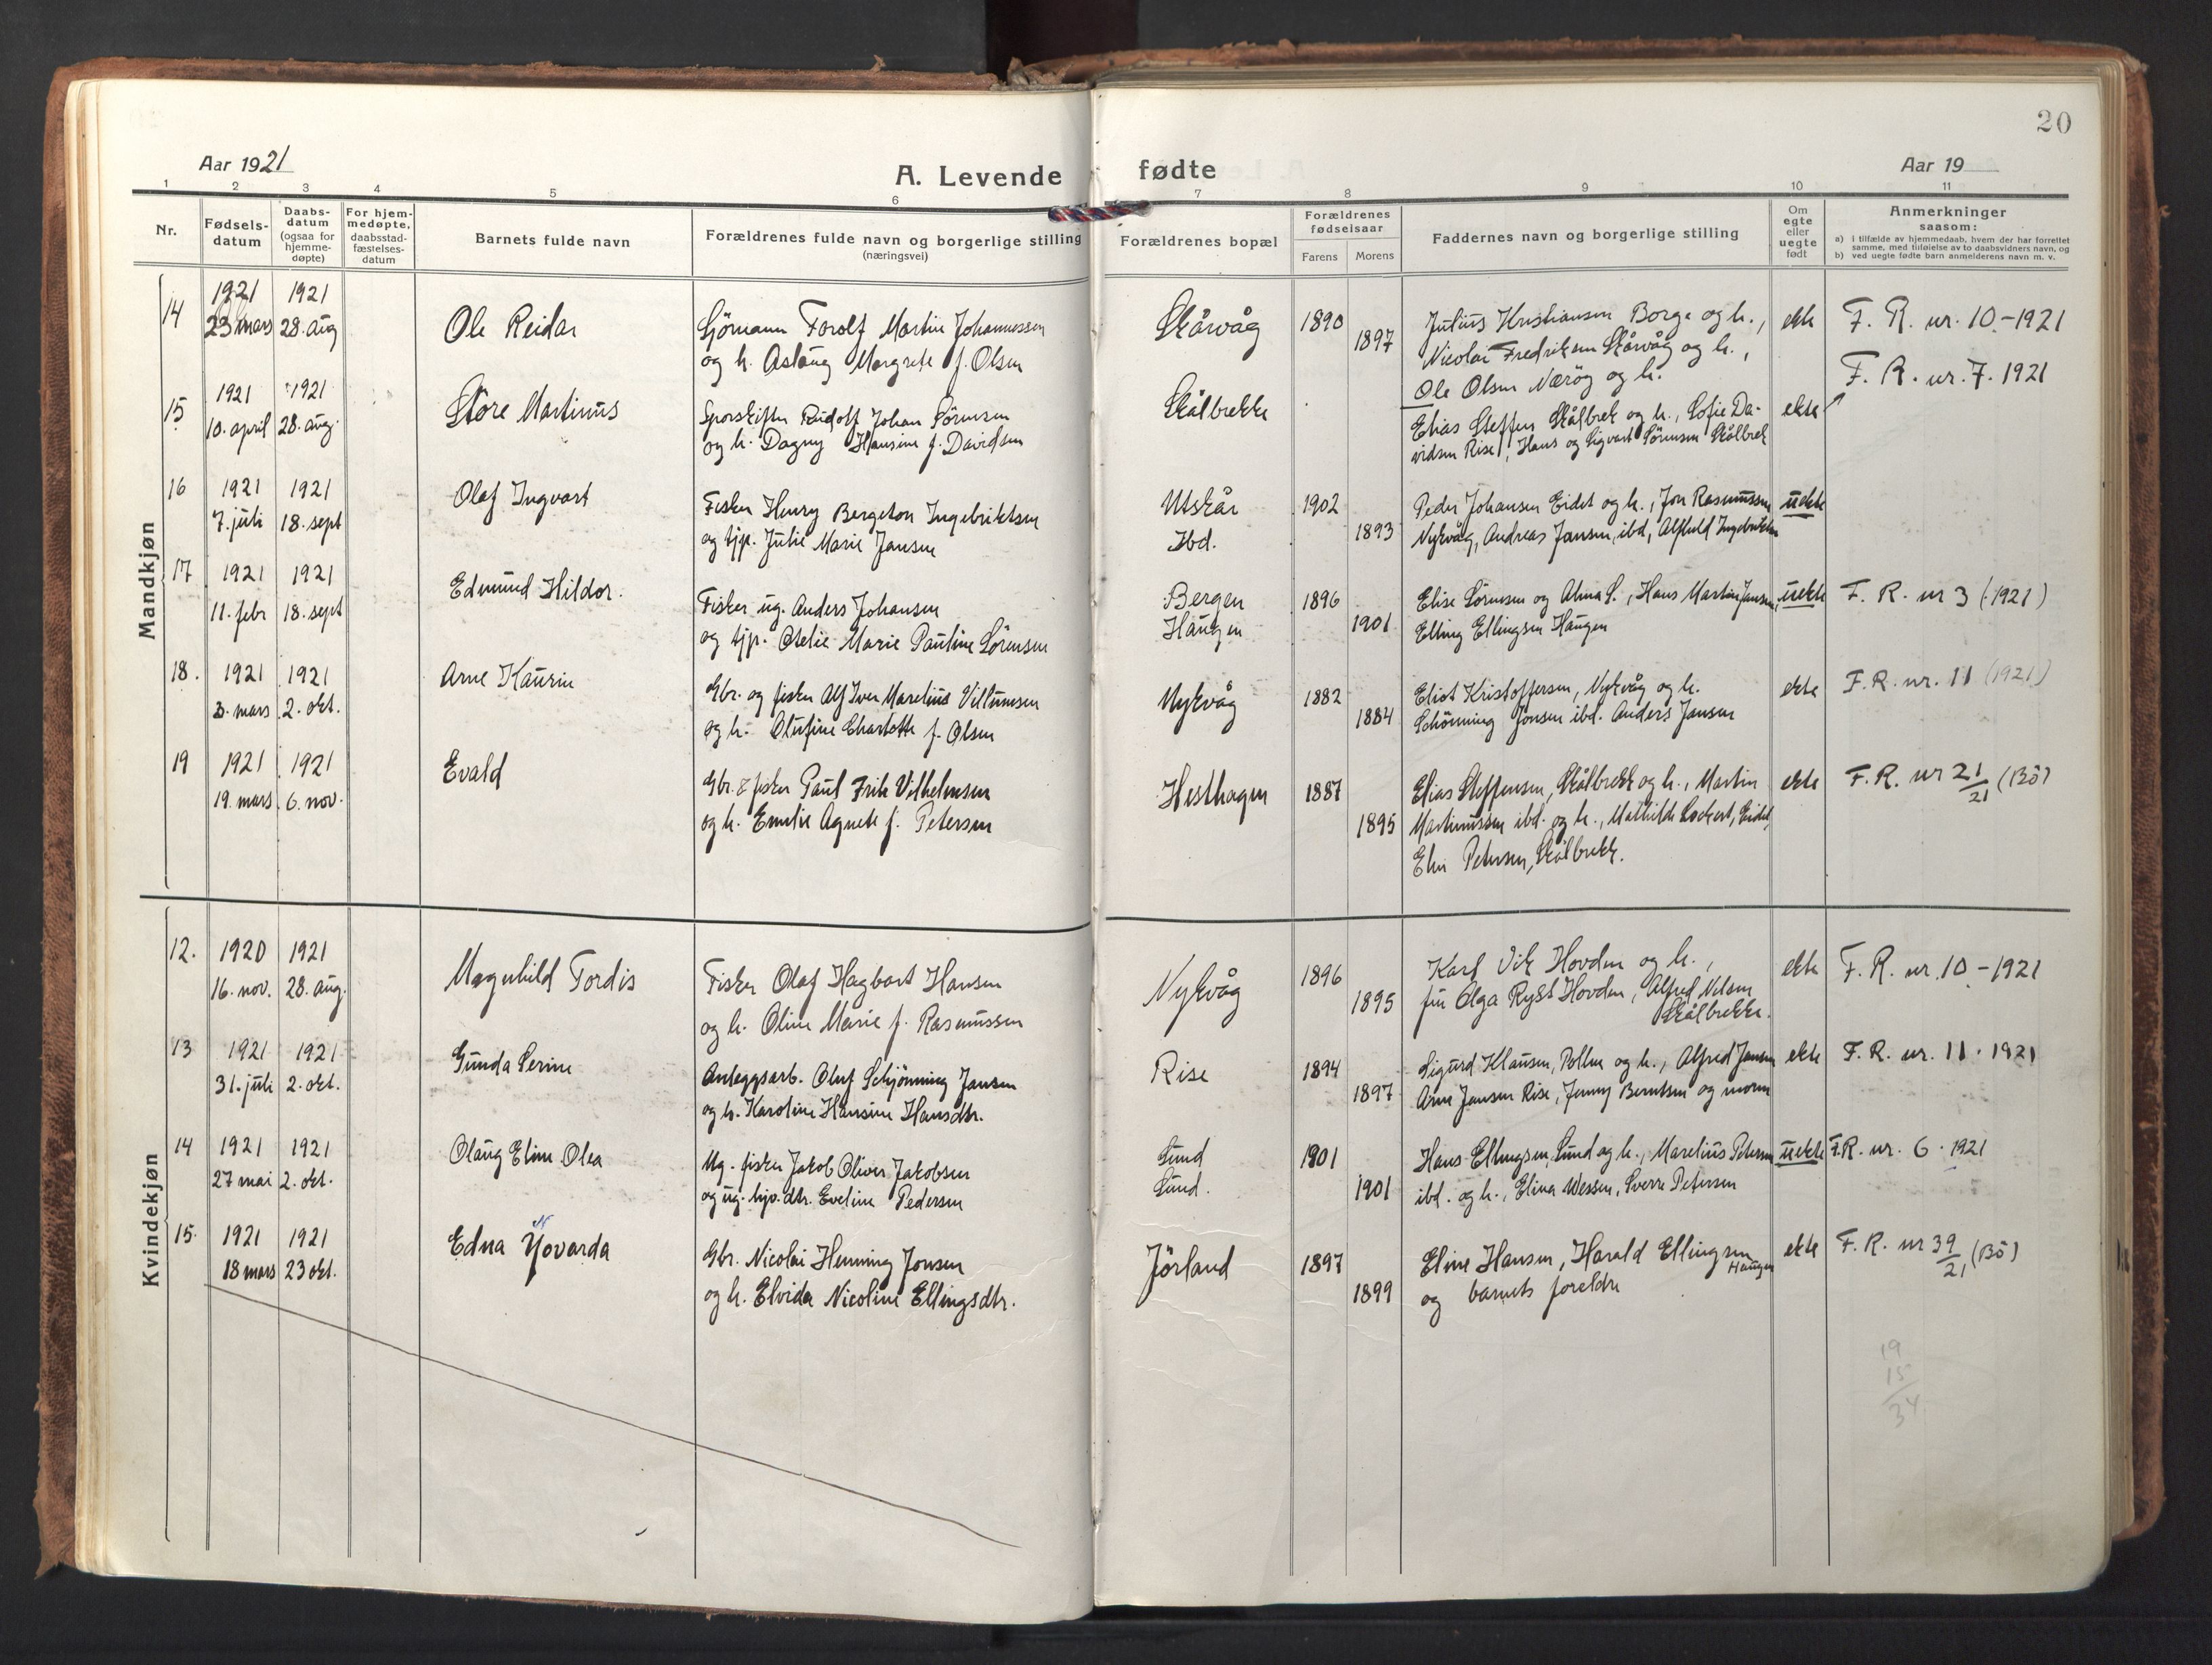 20
Aar 1921
A. Levende fødte
Aar 19
1 2 3 4 5 6 7 8 9 10 11
Nr.
Fødsels-
datum
Daabs-
datum
(ogsaa for
hjemme-
døpte)
For hjem-
medøpte,
daabsstad-
fæstelses-
datum
Barnets fulde navn
Forældrenes fulde navn og borgerlige stilling
(næringsvei)
Forældrenes bopæl
Forældrenes
fødselsaar
Farens Morens
Faddernes navn og borgerlige stilling
Om
egte
eller
uegte
født
Anmerkninger
saasom:
a) i tilfælde av hjemmedaab, hvem der har forrettet
samme, med tilføielse av to daabsvidners navn, og
b) ved uegte fødte barn anmelderens navn m. v.
Mandkjøn
14 1921 1921
23 mars 28. aug
Ole Reidar
Sjømann Torolf Martin Johannessen
og h. Aslaug Margrete f. Olsen
Skårvåg
1890
1897
Julius Kristiansen Borge og h.,
Nicolai Fredriksen Skårvåg og h.,
Ole Olsen Nærøy og h.
ekte
F. R. nr. 10.-1921
15 1921 1921
10. april 28. aug.
Store Martinus
Sporskifter Rudolf Johan Sørensen
og h. Dagny Hansine f. Davidsen
Skålbrekke
Elias Steffen Skålbrek og h., Sofie Da-
vidsen Rise, Hans og Sigvart Sørensen Skålbrek
ekte
F. R. nr. 7. 1921
16 1921 1921
7. juli 18. sept
Olaf Ingvart
Fisker Henry Bergeton Ingebriktsen
og tjp. Julie Marie Jansen
Utskår
Ibd.
1902
1893
Peder Johansen Eidet og h., Jon Rasmussen
Nykvåg, Andreas Jansen, ibd, Alfhild Ingebriktsen
uekte
17 1921 1921
11. febr 18. sept
Edmund Hildor.
Fisker ug. Anders Johansen
og tjp. Marie Pauline Sørensen
Bergen
Haugen
1896
1901
Elise Sørensen og Alma S., Hans Martin Jansen,
Elling Ellingsen Haugen
uekte
F. R. nr 3 (1921)
18. 1921 1921
3. mars 2. okt.
Arne Kaurin
Gbr. og fisker Alf Iver Marelius Villumsen
og h. Olufine Charlotte f. Olsen
Nykvåg
1882
1884
Eliot Kristoffersen, Nykvåg og h.
Schönning Jonsen ibd. Anders Jansen
ekte
F. R. nr. 11 (1921)
19 1921 1921
19. mars 6. nov.
Evald
Gbr. & fisker Paul Frik Vilhelmsen
og h. Emilie Agnete f. Petersen
Hesthagen
1887
1895
Elias Steffensen, Skålbrekk og h., Martin
Martinussen ibd. og h., Mathilde Lockert, Eidet,
Petersen, Skålbrekk.
ekte
F. R. nr 21/21 (Bö)
Kvindekjøn
12. 1920 1921
16. nov. 28. aug.
Magnhild Tordis
Fisker Olaf Hagbart Hansen
og h. Oline Marie f. Rasmussen
Nykvåg
1896
1895
Karl Vik Hovden og h.,
frk Olga Ryst Hovden, Alfred Nilsen
Skålbrekke.
ekte
F. R. nr. 10 - 1921
13 1921 1921
31. juli 2. okt.
Gunda Serine
Anleggsarb. Oluf Schjönning Jansen
og h. Karoline Hansine Hansdtr.
Rise
1894
1897
Sigurd Klausen, Pollen og h., Alfred Jansen
Arne Jansen Rise, Jenny Berntsen og moren
ekte
F. R. nr. 11 · 1921
14 1921 1921
27 mai 2. okt.
Olaug Eline Olea
Ug. fisker Jakob Oliver Jakobsen
og ug. hjp. dtr. Eveline Pedersen
Sund
Sund.
1901
1901
Hans Ellingsen, Sund og h., Marelius Petersen
ibd. og h., Elina Wessen, Sverre Petersen
uekte
F. R. nr. 6 · 1921
15. 1921 1921
18 mars 23 okt.
Edna Yovarda
Gbr. Nicolai Henning Jonsen
og h. Elvida Nicoline Ellingsdtr.
Jörland
1897
1899
Eline Hansen, Harald Ellingsen
Haugen
og barnets foreldre
ekte
F. R. nr 39/21 (Bö)
19
15
34